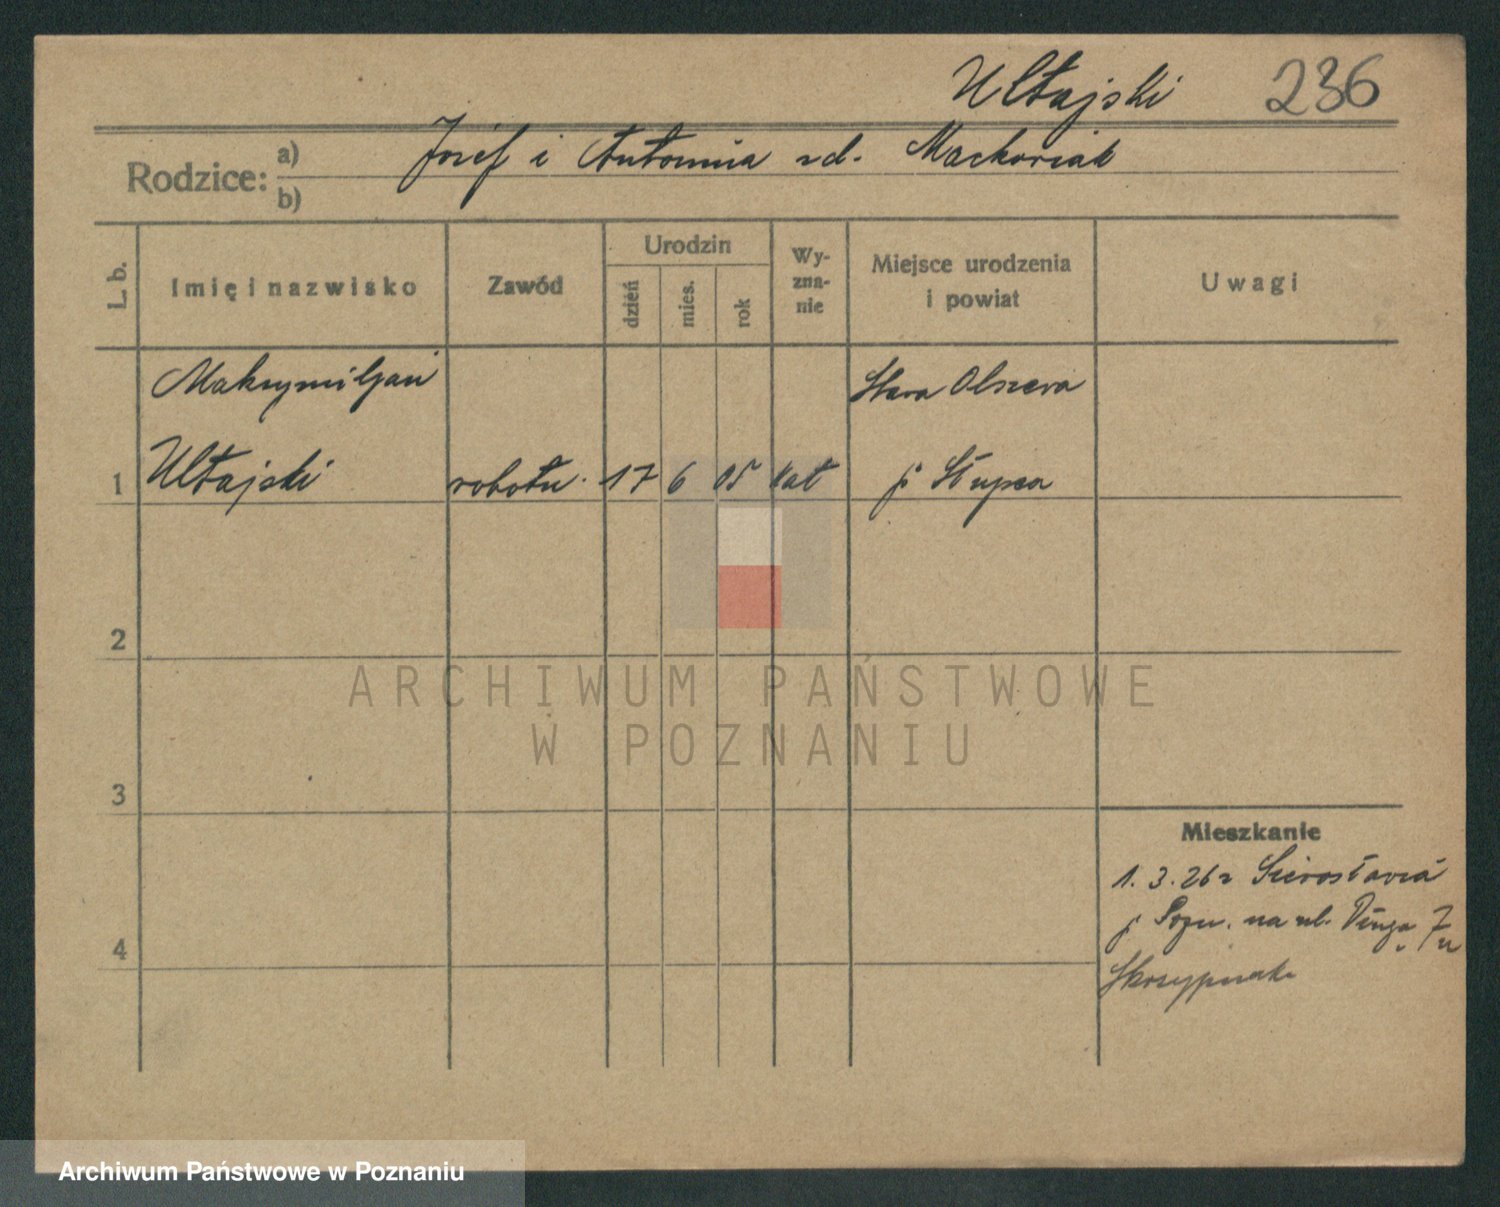 Ułtajski 236
Rodzice: a) Józef i Antonina zd. Maćkowiak
b)
L. b.
Imię i nazwisko
Zawód
Urodzin
dzień
mies.
rok
Wy-
zna-
nie
Miejsce urodzenia
i powiat
Uwagi
Maksymiljan Stara Olszewa
1 Ułtajski robotn. 17 6 05 kat p Słupca
2
ARCHIWUM PAŃSTWOWE
W POZNANIU
3
Mieszkanie
1. 3. 26 z Sierosławia
p Pozn. na ul. 7
4
Archiwum Państwowe w Poznaniu